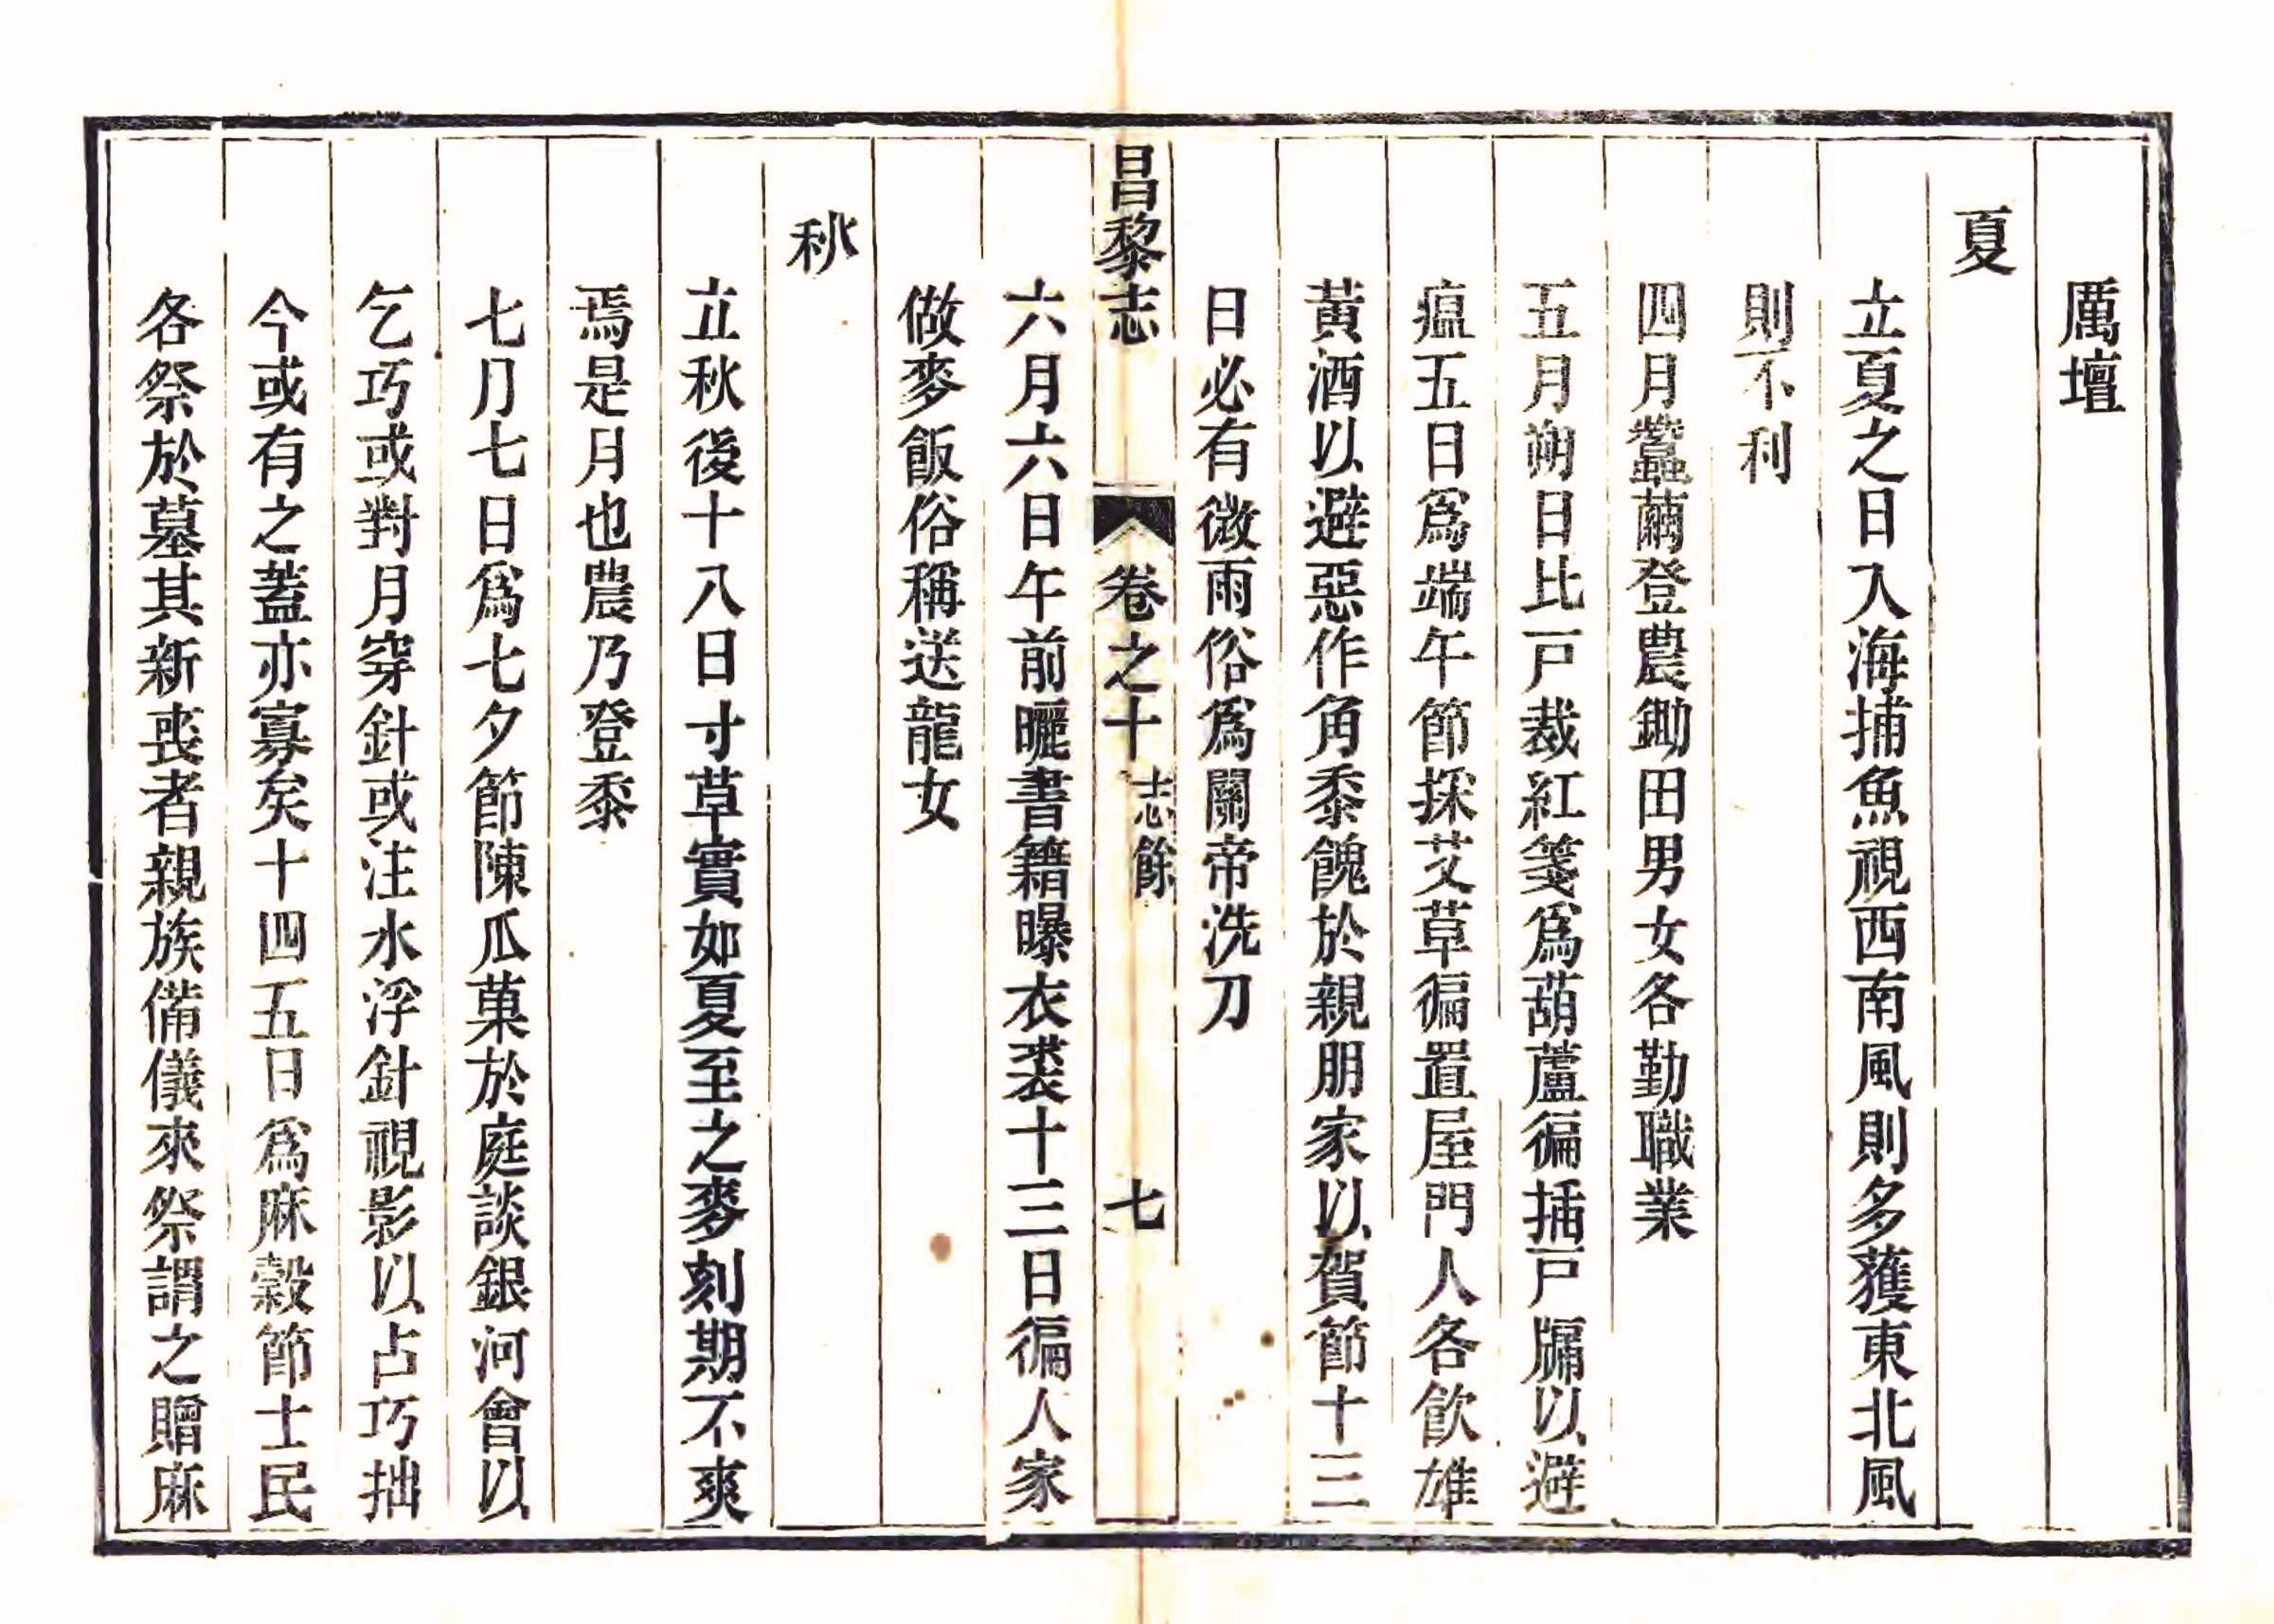 厲壇
夏
立夏之日入海捕魚視西南風則多獲東北風
則不利
四月蠶繭登農鋤田男女各勤職業
五月朔日比戸裁紅箋爲葫蘆徧插戸牖以避
瘟五日爲端午節採艾草徧置屋門人各飮雄
黃酒以避惡作角黍餽於親朋家以賀節十三
日必有微雨俗爲關帝洗刀
昌黎志 卷之十 志餘 七
六月六日午前曬書籍曝衣裘十三日徧人家
做麥飯俗稱送龍女
秋
立秋後十八日寸草實如夏至之麥刻期不爽
焉是月也農乃登黍
七月七日爲七夕節陳瓜菓於庭談銀河會以
乞巧或對月穿針或注水浮針視影以占巧拙
今或有之蓋亦寡矣十四五日爲麻穀節士民
各祭於墓其新喪者親族備儀來祭謂之贈麻